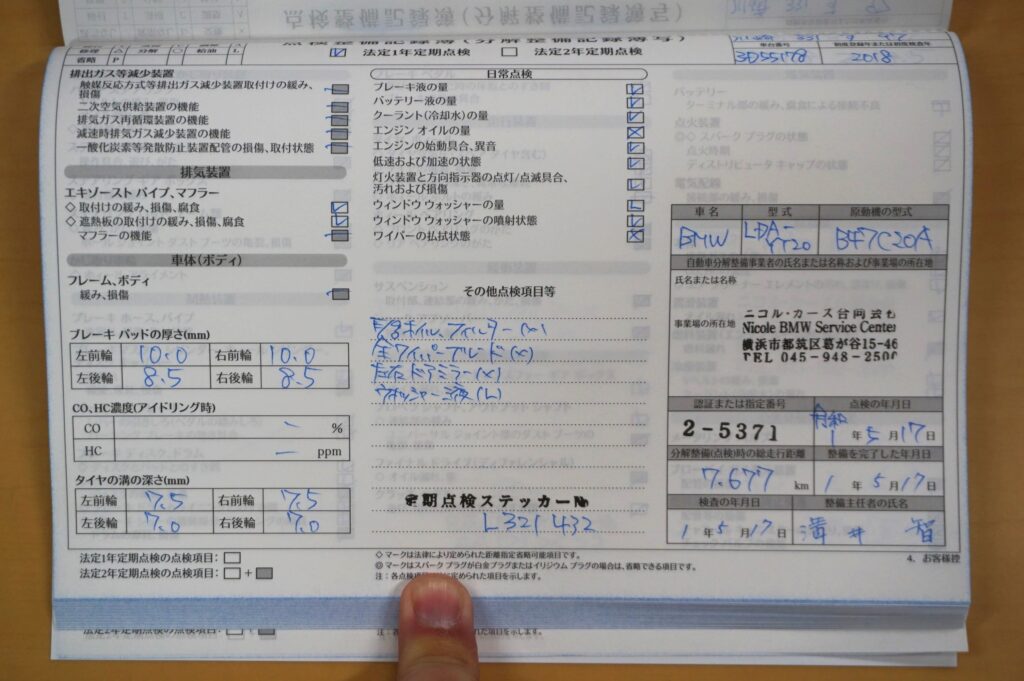 点検整備記録簿(分解整備記録簿写)
省略 P
分解 給油 L
法定1年定期点検 法定2年定期点検
車台番号
3D55178
初度登録年または初度検査年
2018
排出ガス等減少装置
触媒反応方式等排出ガス減少装置取付けの緩み、
損傷
二次空気供給装置の機能
排気ガス再循環装置の機能
減速時排気ガス減少装置の機能
一酸化炭素等発散防止装置配管の損傷、取付状態
排気装置
エキゾースト パイプ、マフラー
◇ 取付けの緩み、損傷、腐食
◇ 遮熱板の取付けの緩み、損傷、腐食
マフラーの機能
車体(ボディ)
フレーム、ボディ
緩み、損傷
ブレーキ パッドの厚さ(mm)
左前輪 10.0 右前輪 10.0
左後輪 8.5 右後輪 8.5
CO、HC濃度(アイドリング時)
CO - %
HC - ppm
タイヤの溝の深さ(mm)
左前輪 7.5 右前輪 7.5
左後輪 7.0 右後輪 7.0
日常点検
ブレーキ液の量
バッテリー液の量
クーラント(冷却水)の量
エンジン オイルの量
エンジンの始動具合、異音
低速および加速の状態
灯火装置と方向指示器の点灯/点滅具合、
汚れおよび損傷
ウィンドウ ウォッシャーの量
ウィンドウ ウォッシャーの噴射状態
ワイパーの払拭状態
その他点検項目等
オイル、フィルター(×)
全ワイパーブレード(×)
左右ドアミラー(×)
ウォッシャー液(L)
定期点検ステッカー№
L321432
車名 型式 原動機の型式
BMW LDA-YT20 B47C20A
自動車分解整備事業者の氏名または名称および事業場の所在地
氏名または名称
事業場の所在地
ニコル・カーズ合同会社
Nicole BMW Service Center
横浜市都筑区葛が谷15-46
TEL 045-948-2500
認証または指定番号 点検の年月日
2-5371 令和 1 年 5 月 17 日
分解整備(点検)時の総走行距離 整備を完了した年月日
7,677 km 1 年 5 月 17 日
検査の年月日 整備主任者の氏名
1 年 5 月 17 日 溝井 智
法定1年定期点検の点検項目:
法定2年定期点検の点検項目: +
◇ マークは法律により定められた距離指定省略可能項目です。
◎ マークはスパーク プラグが白金プラグまたはイリジウム プラグの場合は、省略できる項目です。
注:各点検 定められた項目を示します。
4. お客様控